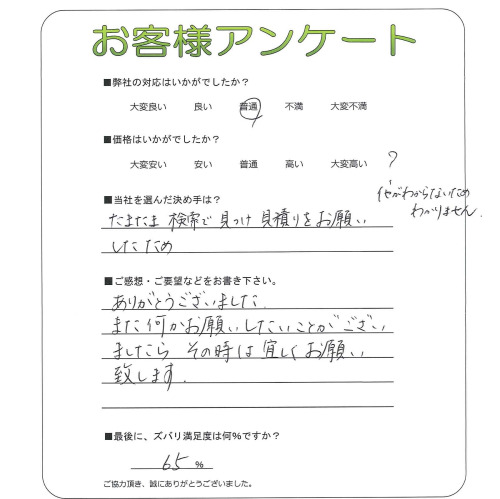 お客様アンケート
■弊社の対応はいかがでしたか？
大変良い　良い　普通　不満　大変不満
■価格はいかがでしたか？
大変安い　安い　普通　高い　大変高い　?
他がわからないため
わかりません.
■当社を選んだ決め手は？
たまたま 検索で 見つけ 見積りをお願い
したため
■ご感想・ご要望などをお書き下さい。
ありがとうございました.
また何かお願いしたいことがござい
ましたら その時は宜しくお願い
致します.
■最後に、ズバリ満足度は何%ですか？
65 %
ご協力頂き、誠にありがとうございました。